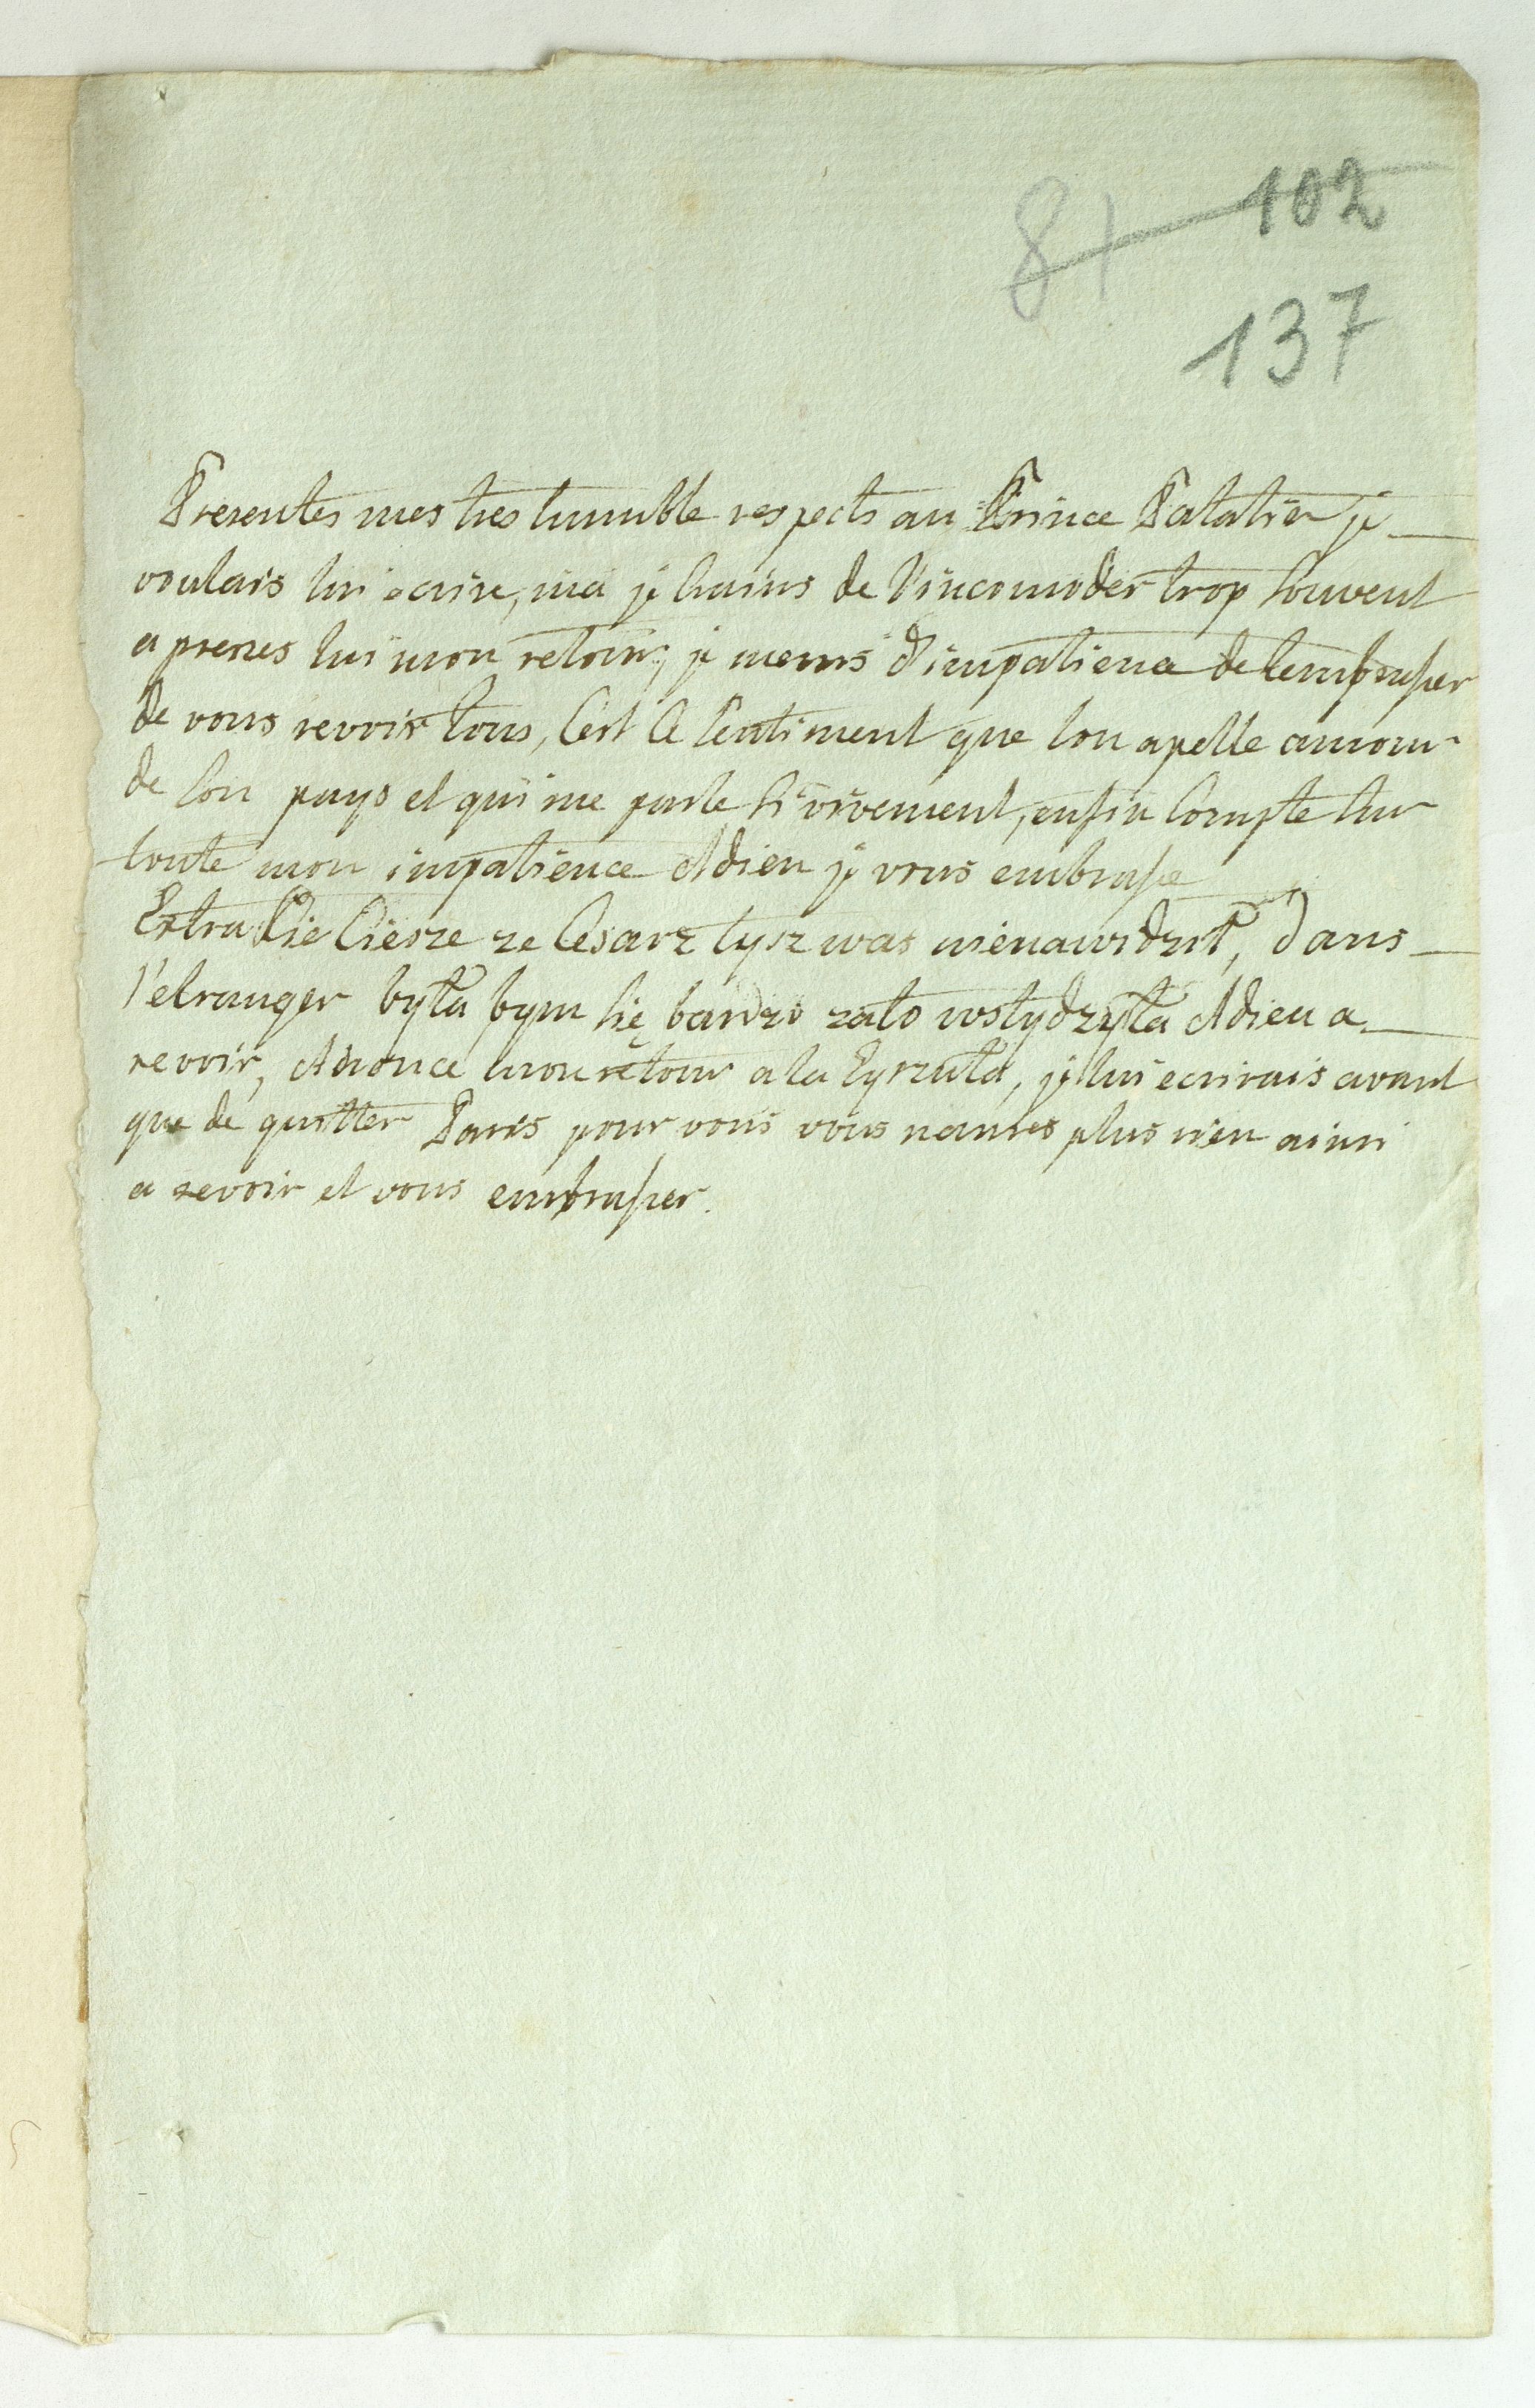 81 102
137
Presentes mes tres humble respects au Prince Palatin je
voulais lui ecrire, mai je crains de l'incomoder trop souvent
aprenes lui mon retour, je meurs d'impatience de lembrasser
de vous revoir tous, C'est le sentiment que lon apelle amour
de son pays et qui me parle si vivement, enfin Compte sur
toute mon impatience Adieu je vous embrasse
Extra Sie Ciesze ze Cesarz tysz was nienawidził, dans
l'etranger była bym się bardzo zato wstydzyła Adieu a
revoir, Anonce mon retour a la Zyszula, je lui ecrirais avant
que de quitter Paris pour vous vous naures plus rien ainsi
a revoir et vous embrasser.